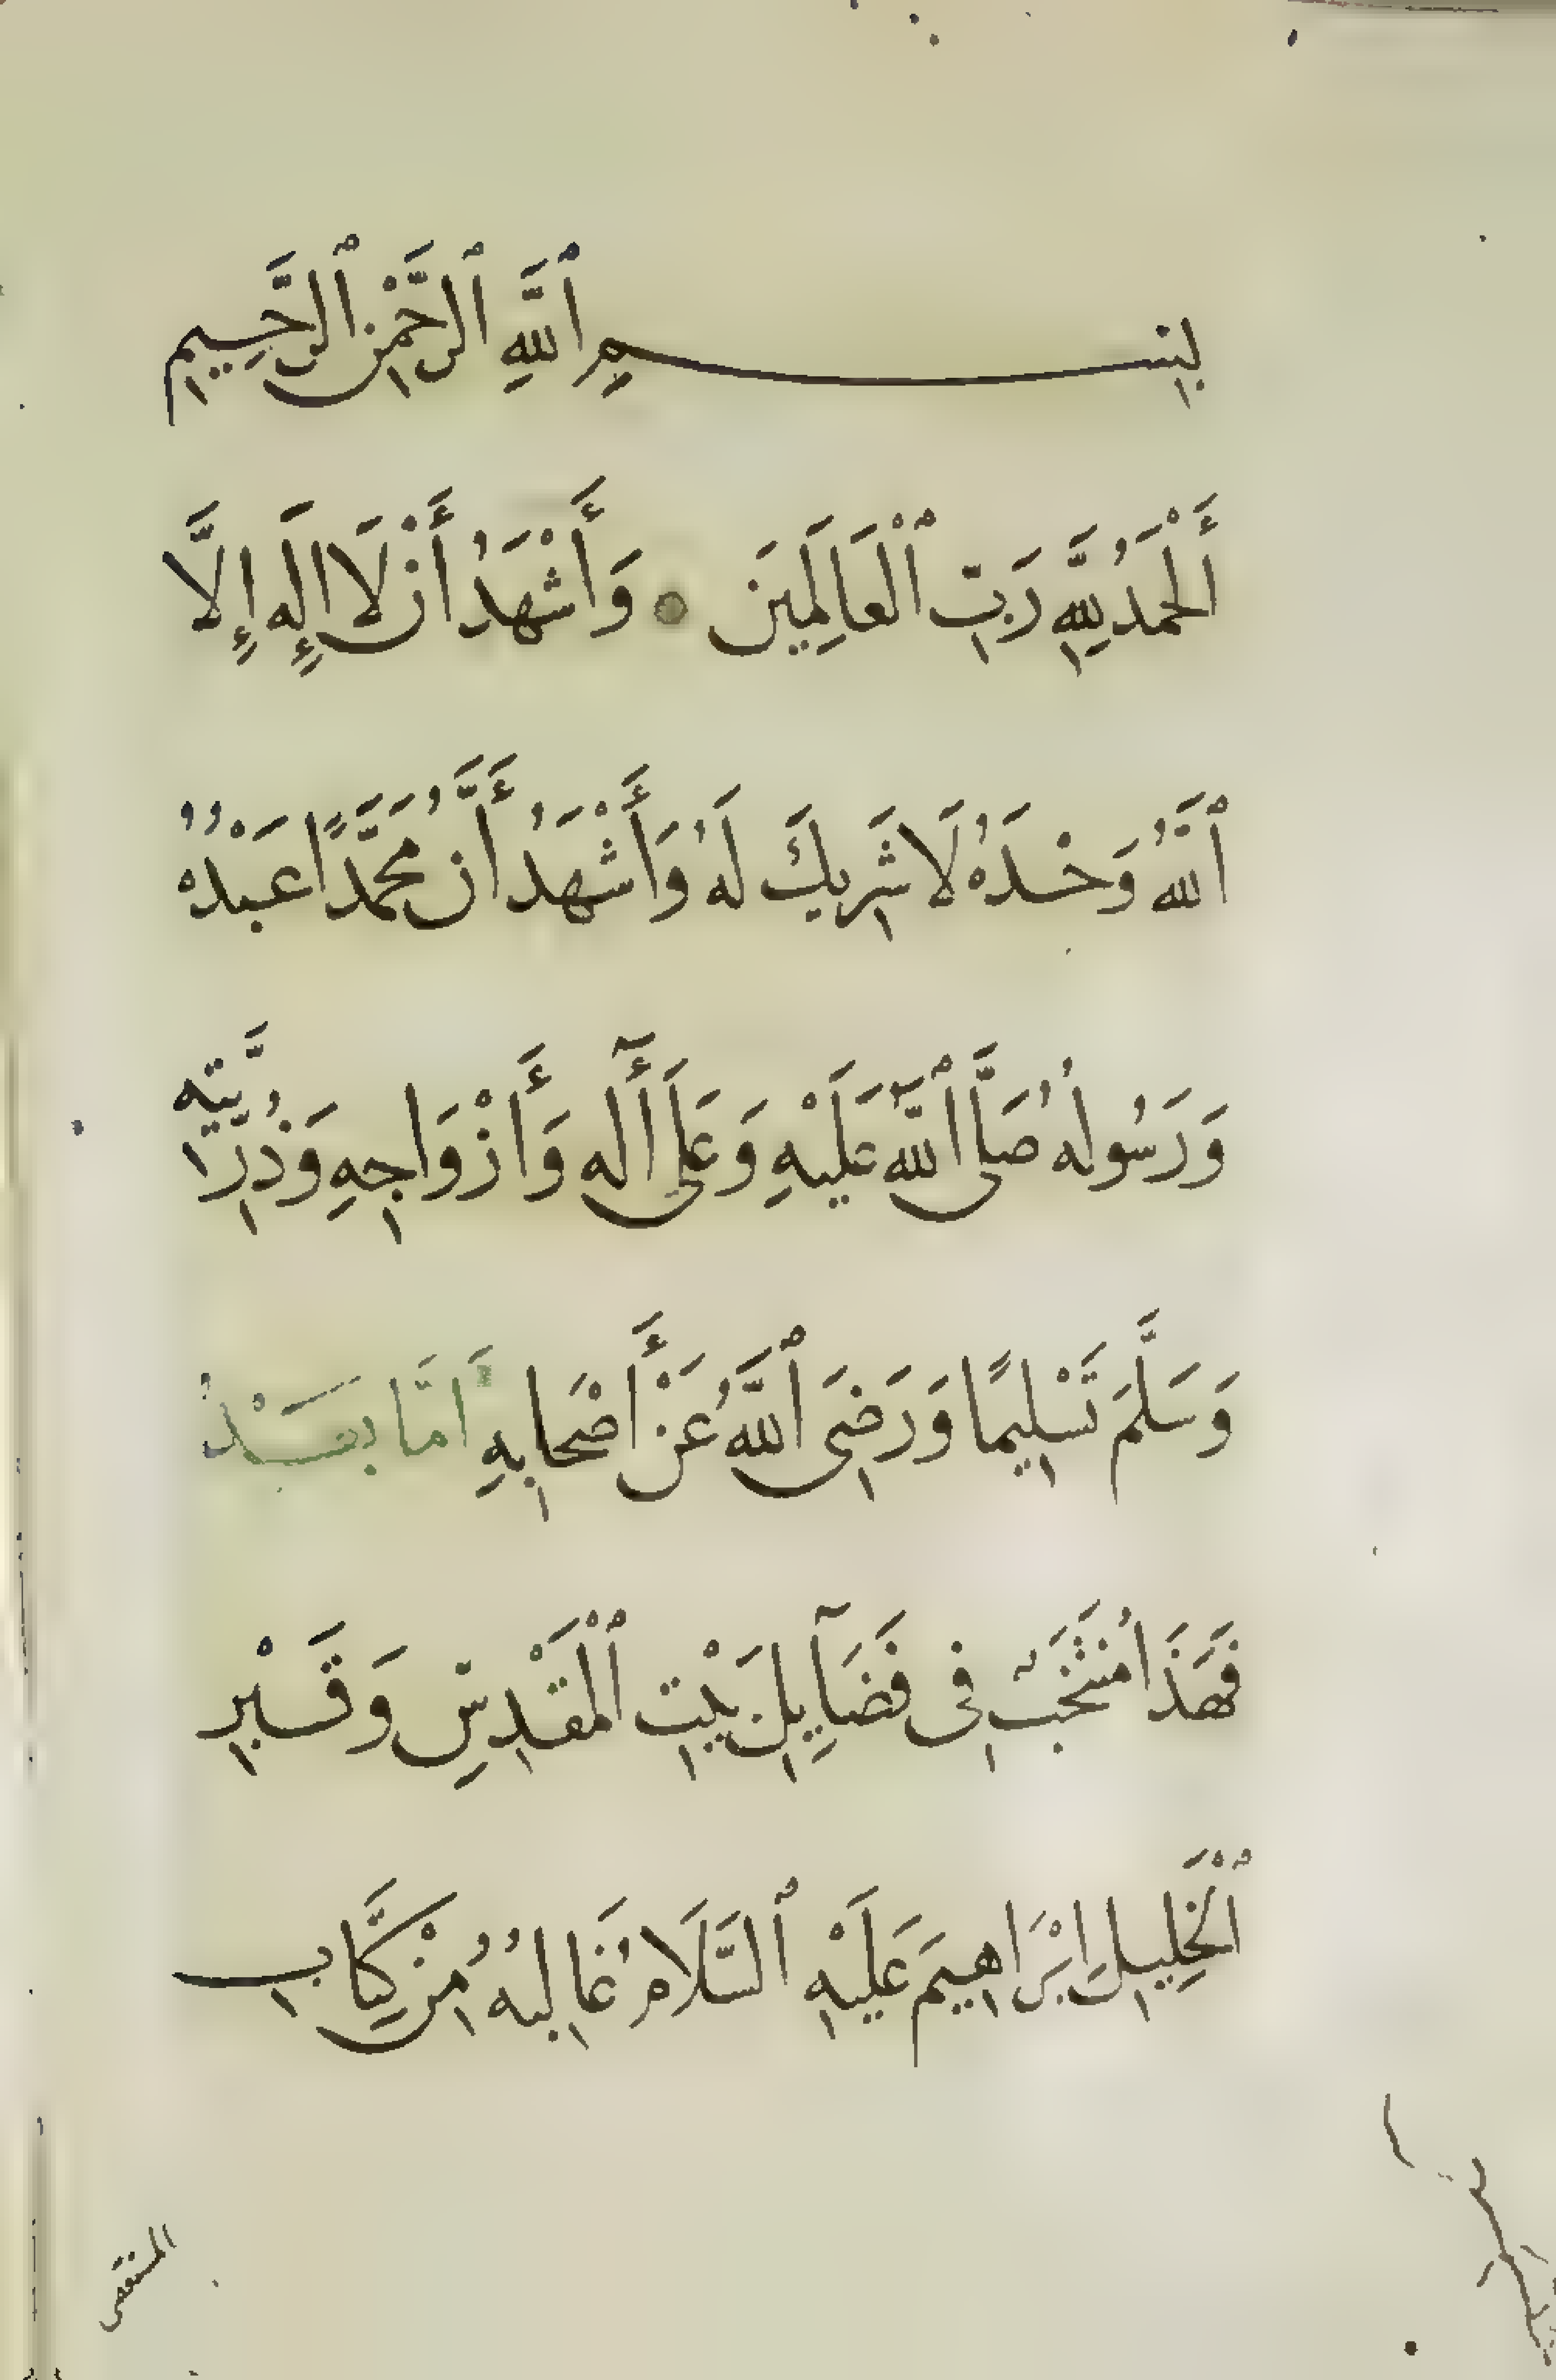 بِسْمِ ٱللَّهِ ٱلرَّحْمٰنِ ٱلرَّحِيمِ
أَلْحَمْدُ لِلَّهِ رَبِّ ٱلْعَالَمِينَ وَأَشْهَدُ أَنْ لَا إِلَهَ إِلَّا
ٱللَّهُ وَحْدَهُ لَا شَرِيكَ لَهُ وَأَشْهَدُ أَنَّ مُحَمَّدًا عَبْدُهُ
وَرَسُولُهُ صَلَّى ٱللَّهُ عَلَيْهِ وَعَلَى أَٓلِهِ وَأَزْوَاجِهِ وَذُرِّيَّتِهِ
وَسَلَّمَ تَسْلِيمًا وَرَضِيَ ٱللَّهُ عَنْ أَصْحَابِهِ أَمَّا بَعْدُ
فَهَذَا مُنْتَخَبٌ فِى فَضَآيِلِ بَيْتِ ٱلْمَقْدِسِ وَقَبْرِ
ٱلْخَلِيلِ إِبْرَاهِيمَ عَلَيْهِ ٱلسَّلَامُ غَالِبُهُ مِنْ كِتَابِ
المستقصى